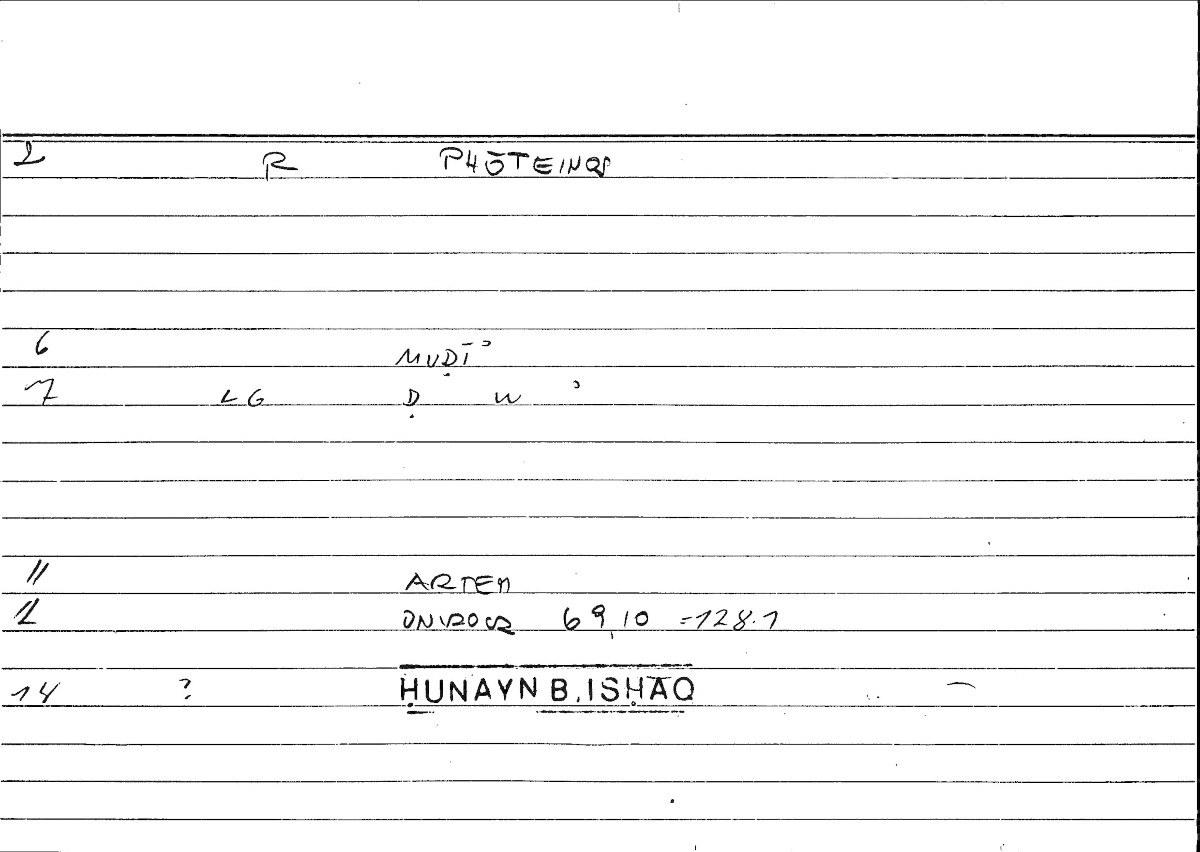 2 R PHŌTEINOS
6 MUḌĪʾ
7 LG Ḍ W ʾ
11 ARTEM
12 ONIROCR 69,10 =128.1
14 ? ḤUNAYN B. ISḤĀQ